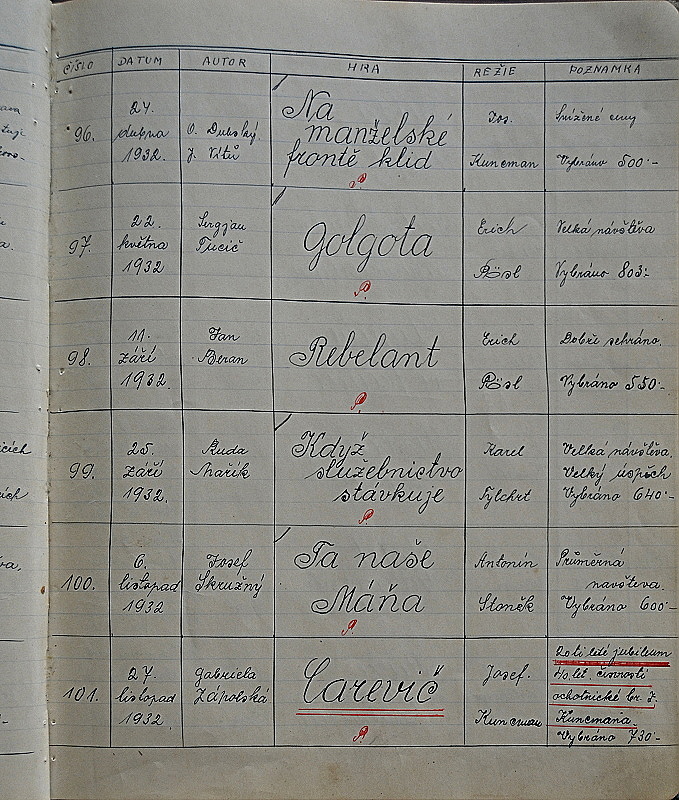 ČÍSLO DATUM AUTOR HRA REŽIE POZNÁMKA
96.
24.
dubna
1932.
O. Dubský
J. Vítů
Na
manželské
frontě klid
Jos.
Kuneman
Snížené ceny
Vybráno 500·-
97.
22.
května
1932
Srgjan
Tucič
Golgota
Erich
Rösl
Velká návštěva
Vybráno 803·-
98.
11.
září
1932.
Jan
Beran
Rebelant
Erich
Rösl
Dobře sehráno.
Vybráno 550·-
99.
25.
září
1932.
Ruda
Mařík
Když
služebnictvo
stávkuje
Karel
Tylchrt
Velká návštěva.
Velký úspěch
Vybráno 640·-
100.
6.
listopad
1932
Josef
Skružný
Ta naše
Máňa
Antonín
Sloněk
Průměrná
navšteva.
Vybráno 600·-
101.
27.
listopad
1932.
Gabriela
Zápolská
Carevič
Josef.
Kuneman
20ti leté jubileum
40 let. činnosti
ochotnické br. J.
Kunemana.
Vybráno 730·-